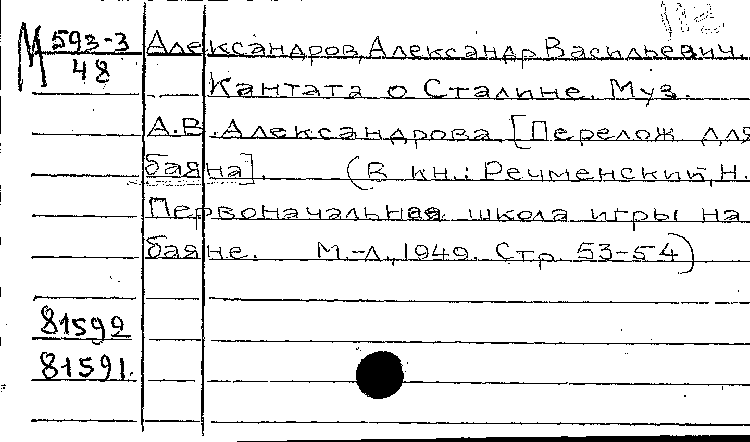 112
М 593-3 Александров, Александр Васильевич.
48 Кантата о Сталине. Муз.
А.В. Александрова [Перелож для
баяна]. (В кн.: Речменский, Н.
Первоначальная школа игры на
баяне. М.-Л., 1949. Стр. 53-54)
81592
81591.